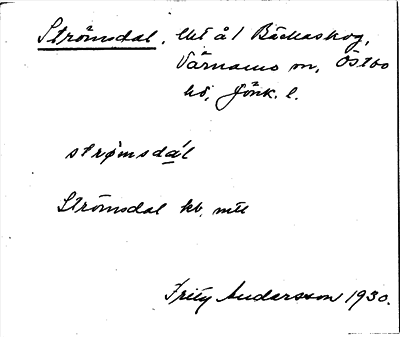 Strömsdal, lht å 1 Bäckaskog,
Värnamo sn, Östbo
hd, Jönk. l.
strømsdal
Strömsdal kb, mtl
Fritz Andersson 1930.